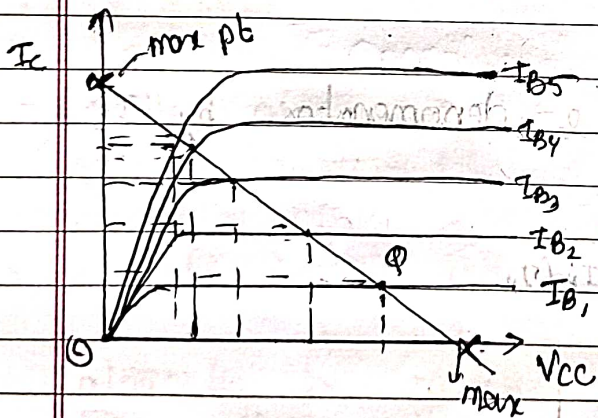 Ic
max pt
IB5
IB4
IB3
IB2
Q
IB1
O
VCC
max